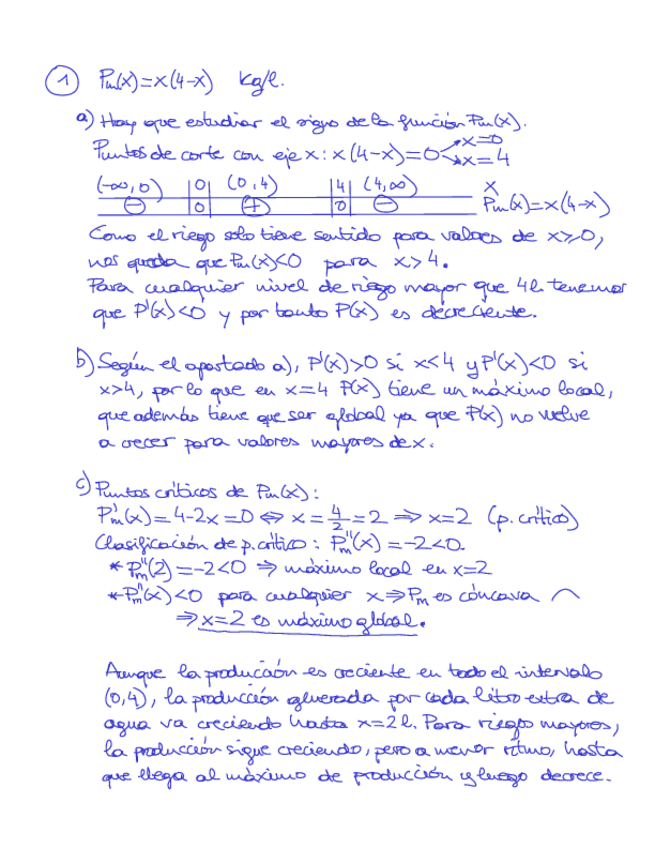 1 Pm(x)=x(4-x) kg/l.
a) Hay que estudiar el signo de la función Pm(x).
Puntos de corte con eje x: x(4-x)=0 x=0 x=4
(-∞,0) 0 (0,4) 4 (4,∞) x
- 0 + 0 - Pm(x)=x(4-x)
Como el riego solo tiene sentido para valores de x≥0,
nos queda que Pm(x)<0 para x>4.
Para cualquier nivel de riego mayor que 4l. tenemos
que P'(x)<0 y por tanto P(x) es decreciente.
b) Según el apartado a), P'(x)>0 si x<4 y P'(x)<0 si
x>4, por lo que en x=4 P(x) tiene un máximo local,
que además tiene que ser global ya que P(x) no vuelve
a crecer para valores mayores de x.
c) Puntos críticos de Pm(x):
P'm(x)=4-2x=0 ⇔ x=4/2=2 ⇒ x=2 (p. crítico)
Clasificación de p. crítico: P''m(x)=-2<0.
* P''m(2)=-2<0 ⇒ máximo local en x=2
* P''m(x)<0 para cualquier x ⇒ Pm es cóncava ⌒
⇒ x=2 es máximo global.
Aunque la producción es creciente en todo el intervalo
(0,4), la producción generada por cada litro extra de
agua va creciendo hasta x=2l. Para riegos mayores,
la producción sigue creciendo, pero a menor ritmo, hasta
que llega al máximo de producción y luego decrece.